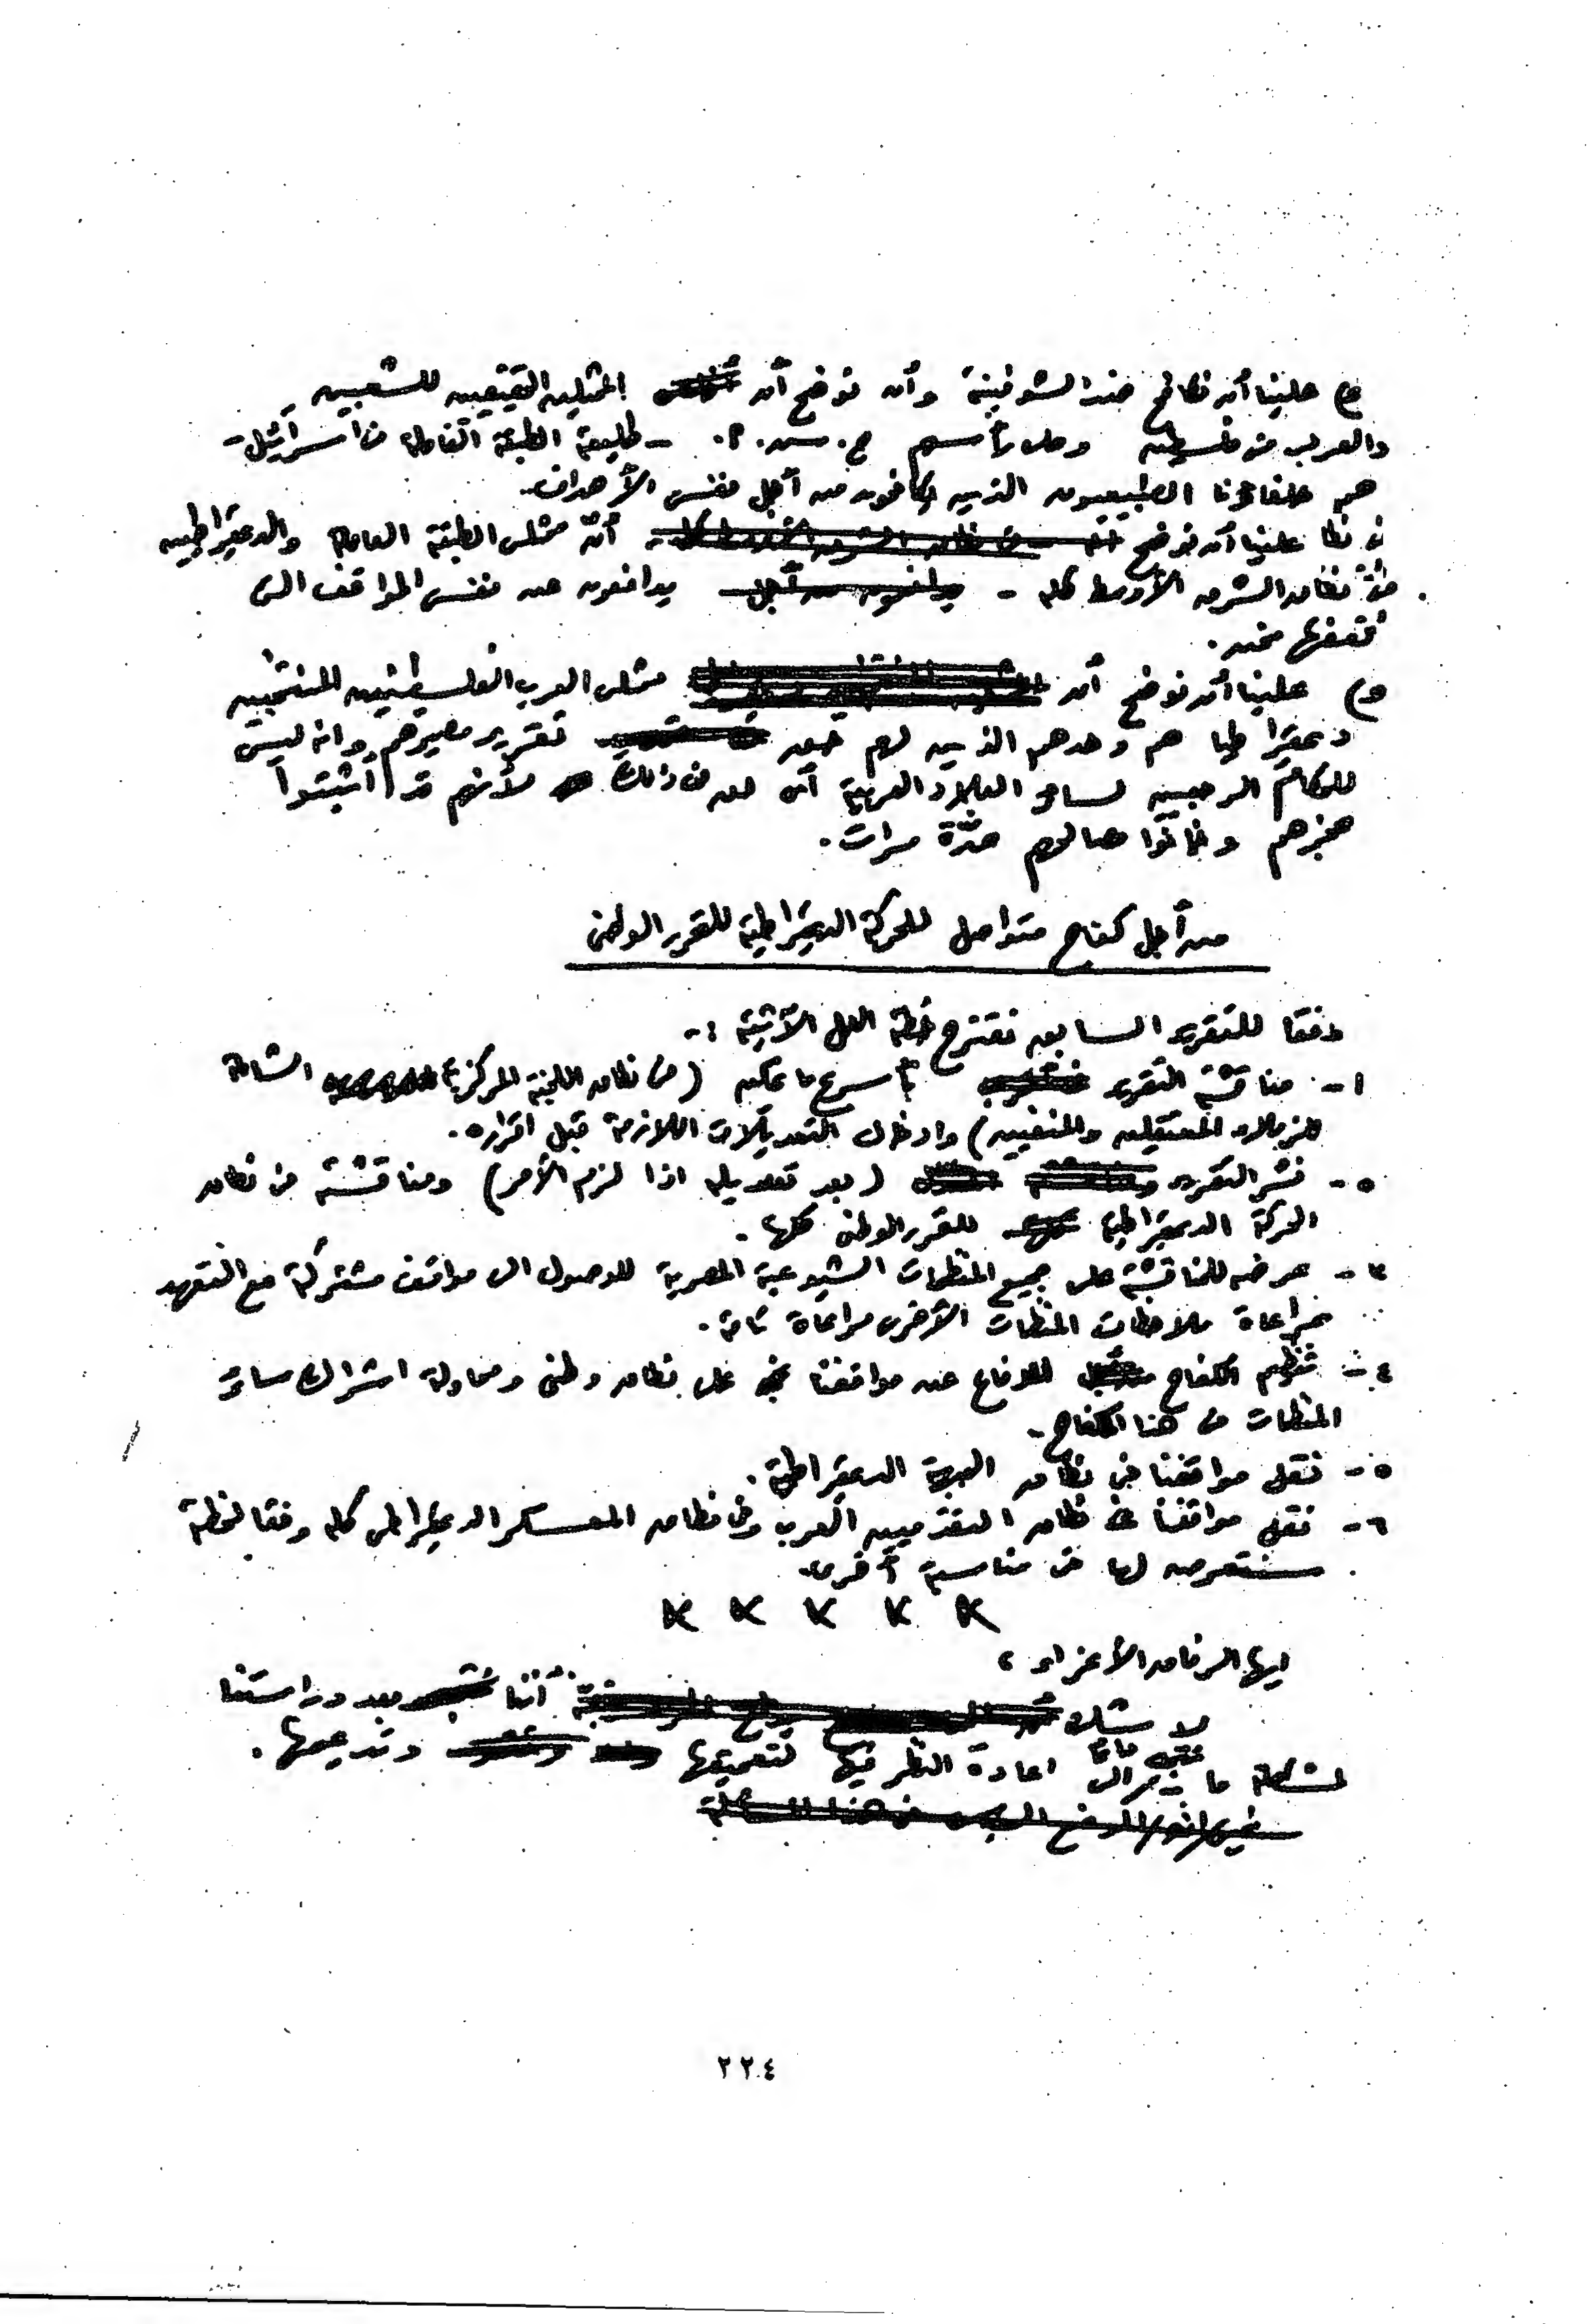 علينا أن نكافح ضد الشوفينية وأن نوضح أن الممثلين الحقيقيين للشعبين
والعرب من فلسطين وعلى رأسهم ح. س. م. - طليعة الطبقة العاملة في اسرائيل -
هم حلفاؤنا الطبيعيون الذين يكافحون من أجل نفس الأهداف.
علينا أن نوضح أن ممثلى الطبقة العاملة والديمقراطيين
فى نطاق الشرق الأوسط كله - يدافعون عن نفس المواقف التى
نقفها نحن.
و) علينا أن نوضح أن ممثلى العرب الفلسطينيين المنتخبين
ديمقراطيا هم وحدهم الذين لهم حق تقرير مصيرهم وانه ليس
للحكام الرجعيين لسائر البلاد العربية أى حق فى ذلك لأنهم قد أثبتوا
عجزهم وخانوا مصالحهم عدّة مرات.
من أجل كفاح متواصل للحركة الديمقراطية للتحرر الوطنى
وفقا للتقرير السابق نقترح خطة العمل الآتية :-
١ - مناقشة التقرير بأسرع ما يمكن (فى نطاق اللجنة المركزية الشاملة
للزملاء المعتقلين والمنفيين) وادخال التعديلات اللازمة قبل اقراره.
٢ - نشر التقرير (بعد تعديله اذا لزم الأمر) ومناقشته فى نطاق
الحركة الديمقراطية للتحرر الوطنى كلها.
٣ - عرضه للمناقشة على جميع المنظمات الشيوعية المصرية للوصول الى مواقف مشتركة مع التعهد
بمراعاة ملاحظات المنظمات الأخرى مراعاة تامة.
٤ - تنظيم الكفاح للدفاع عن مواقفنا على نطاق وطنى ومحاولة اشراك سائر
المنظمات فى هذا الكفاح -
٥ - نقل مواقفنا فى نطاق الجبهة الديمقراطية.
٦ - نقل مواقفنا فى نطاق التقدميين العرب وفى نطاق المعسكر الديمقراطى كله وفقا لخطة
سنتعرض لها فى مناسبة أخرى.
ايها الرفاق الأعزاء ،
لا شك أننا بعد دراستنا
لمشكلة ما نحتاج دائما الى اعادة النظر فيها لتعميقها وتدعيمها.
٢٢٤